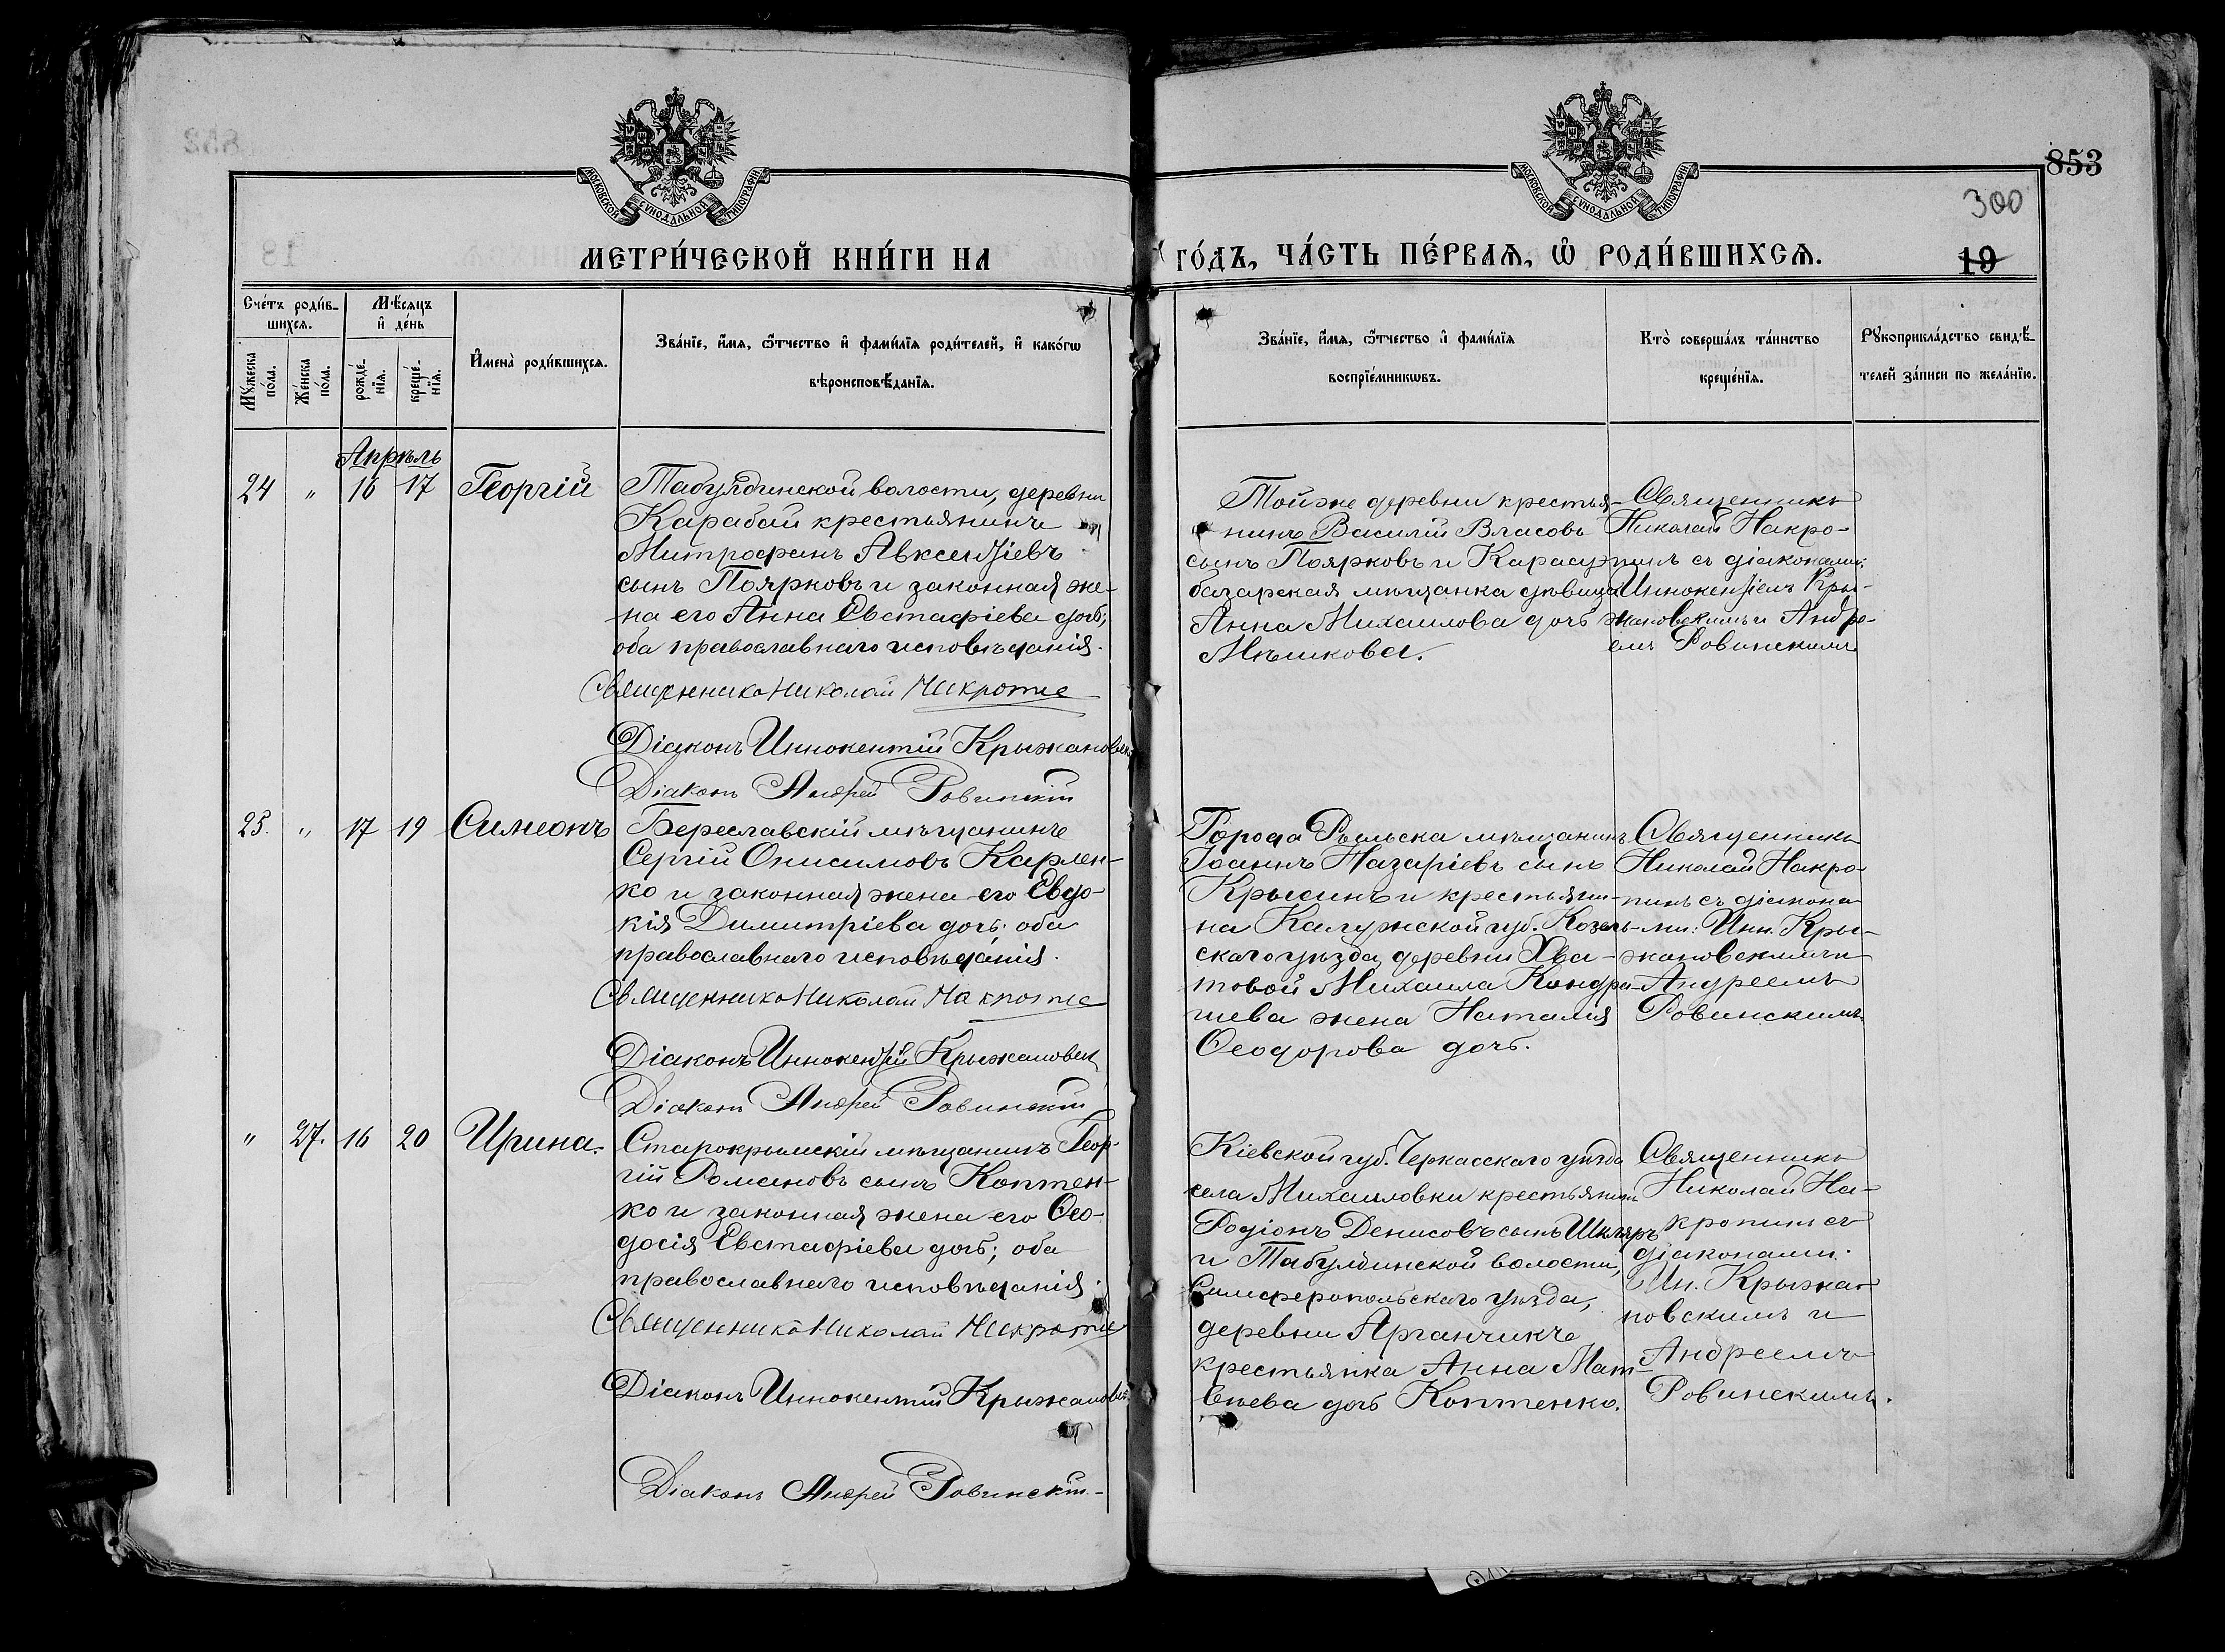 853
300
19
МОСКОВСКОЙ СѴНОДАЛЬНОЙ ТИПОГРАФІИ
МОСКОВСКОЙ СѴНОДАЛЬНОЙ ТИПОГРАФІИ
МЕТРИ́ЧЕСКОЙ КНИ́ГИ НА
ГО́ДЪ, ЧА́СТЬ ПЕ́РВАѦ, Ѡ҆ РОДИ́ВШИХСѦ.
Сче́тъ роди́в-
шихсѧ.
Мѣ́сѧцъ
и҆ де́нь
Мꙋ́жеска
по́ла.
Же́нска
по́ла.
рожде́-
нїѧ.
креще́-
нїѧ.
И҆мена̀ роди́вшихсѧ.
Зва́нїе, и҆́мѧ, ѻ҆́тчество и҆ фами́лїѧ роди́телей, и҆ како́гѡ
вѣроисповѣ́данїѧ.
Зва́нїе, и҆́мѧ, ѻ҆́тчество и҆ фами́лїѧ
воспрїе́мникѡвъ.
Кто̀ соверша́лъ та́инство
креще́нїѧ.
Рꙋкоприкла́дство свидѣ́-
телей за́писи по жела́нїю.
Апрѣль
24 " 16 17 Георгій
Табулдинской волости, деревни
Карабай крестьянинъ
Митрофанъ Авксентіевъ
сынъ Поярковъ и законная же-
на его Анна Евстафіева дочь;
оба православнаго исповѣданія.
Священникъ Николай Накропинъ
Діаконъ Иннокентій Крыжановск
Діаконъ Андрей Ровинскій
Той же деревни крестья-
нинъ Василій Власовъ
сынъ Поярковъ и Карасу-
базарская мѣщанка дѣвица
Анна Михаилова дочь
Мѣшкова.
Священникъ
Николай Накро-
пинъ съ діаконами:
Иннокентіемъ Кры-
жановскимъ и Андре-
емъ Ровинскимъ
25. " 17 19 Симеонъ
Береславскій мѣщанинъ
Сергій Онисимовъ Карпен-
ко и законная жена его Евдо-
кія Димитріева дочь; оба
православнаго исповѣданія.
Священникъ Николай Накропинъ
Діаконъ Иннокентій Крыжановск
Діаконъ Андрей Ровинскій
Города Рыльска мѣщанинъ
Іоаннъ Назаріевъ сынъ
Крысинъ и крестьяни-
на Калужской губ. Козель-
скаго уѣзда, деревни Хва-
товой Михаила Кондра-
шева жена Наталія
Ѳеодорова дочь.
Священникъ
Николай Накро-
пинъ съ діакона-
ми: Инн. Кры-
жановскимъ и
Андреемъ
Ровинскимъ.
" 27. 16 20 Ирина.
Старокрымскій мѣщанинъ Геор-
гій Романовъ сынъ Коптен-
ко и законная жена его Ѳео-
досія Евстафіева дочь; оба
православнаго исповѣданія.
Священникъ Николай Накропинъ
Діаконъ Иннокентій Крыжановск
Діаконъ Андрей Ровинскій
Кіевской губ. Черкасскаго уѣзда
села Михаиловки крестьянинъ
Родіонъ Денисовъ сынъ Шкляръ
и Табулдинской волости,
Симферопольскаго уѣзда,
деревни Арганчикъ
крестьянка Анна Мат-
вѣева дочь Коптенко.
Священникъ
Николай На-
кропинъ съ
діаконами:
Ин. Крыжа-
новскимъ и
Андреемъ
Ровинскимъ.